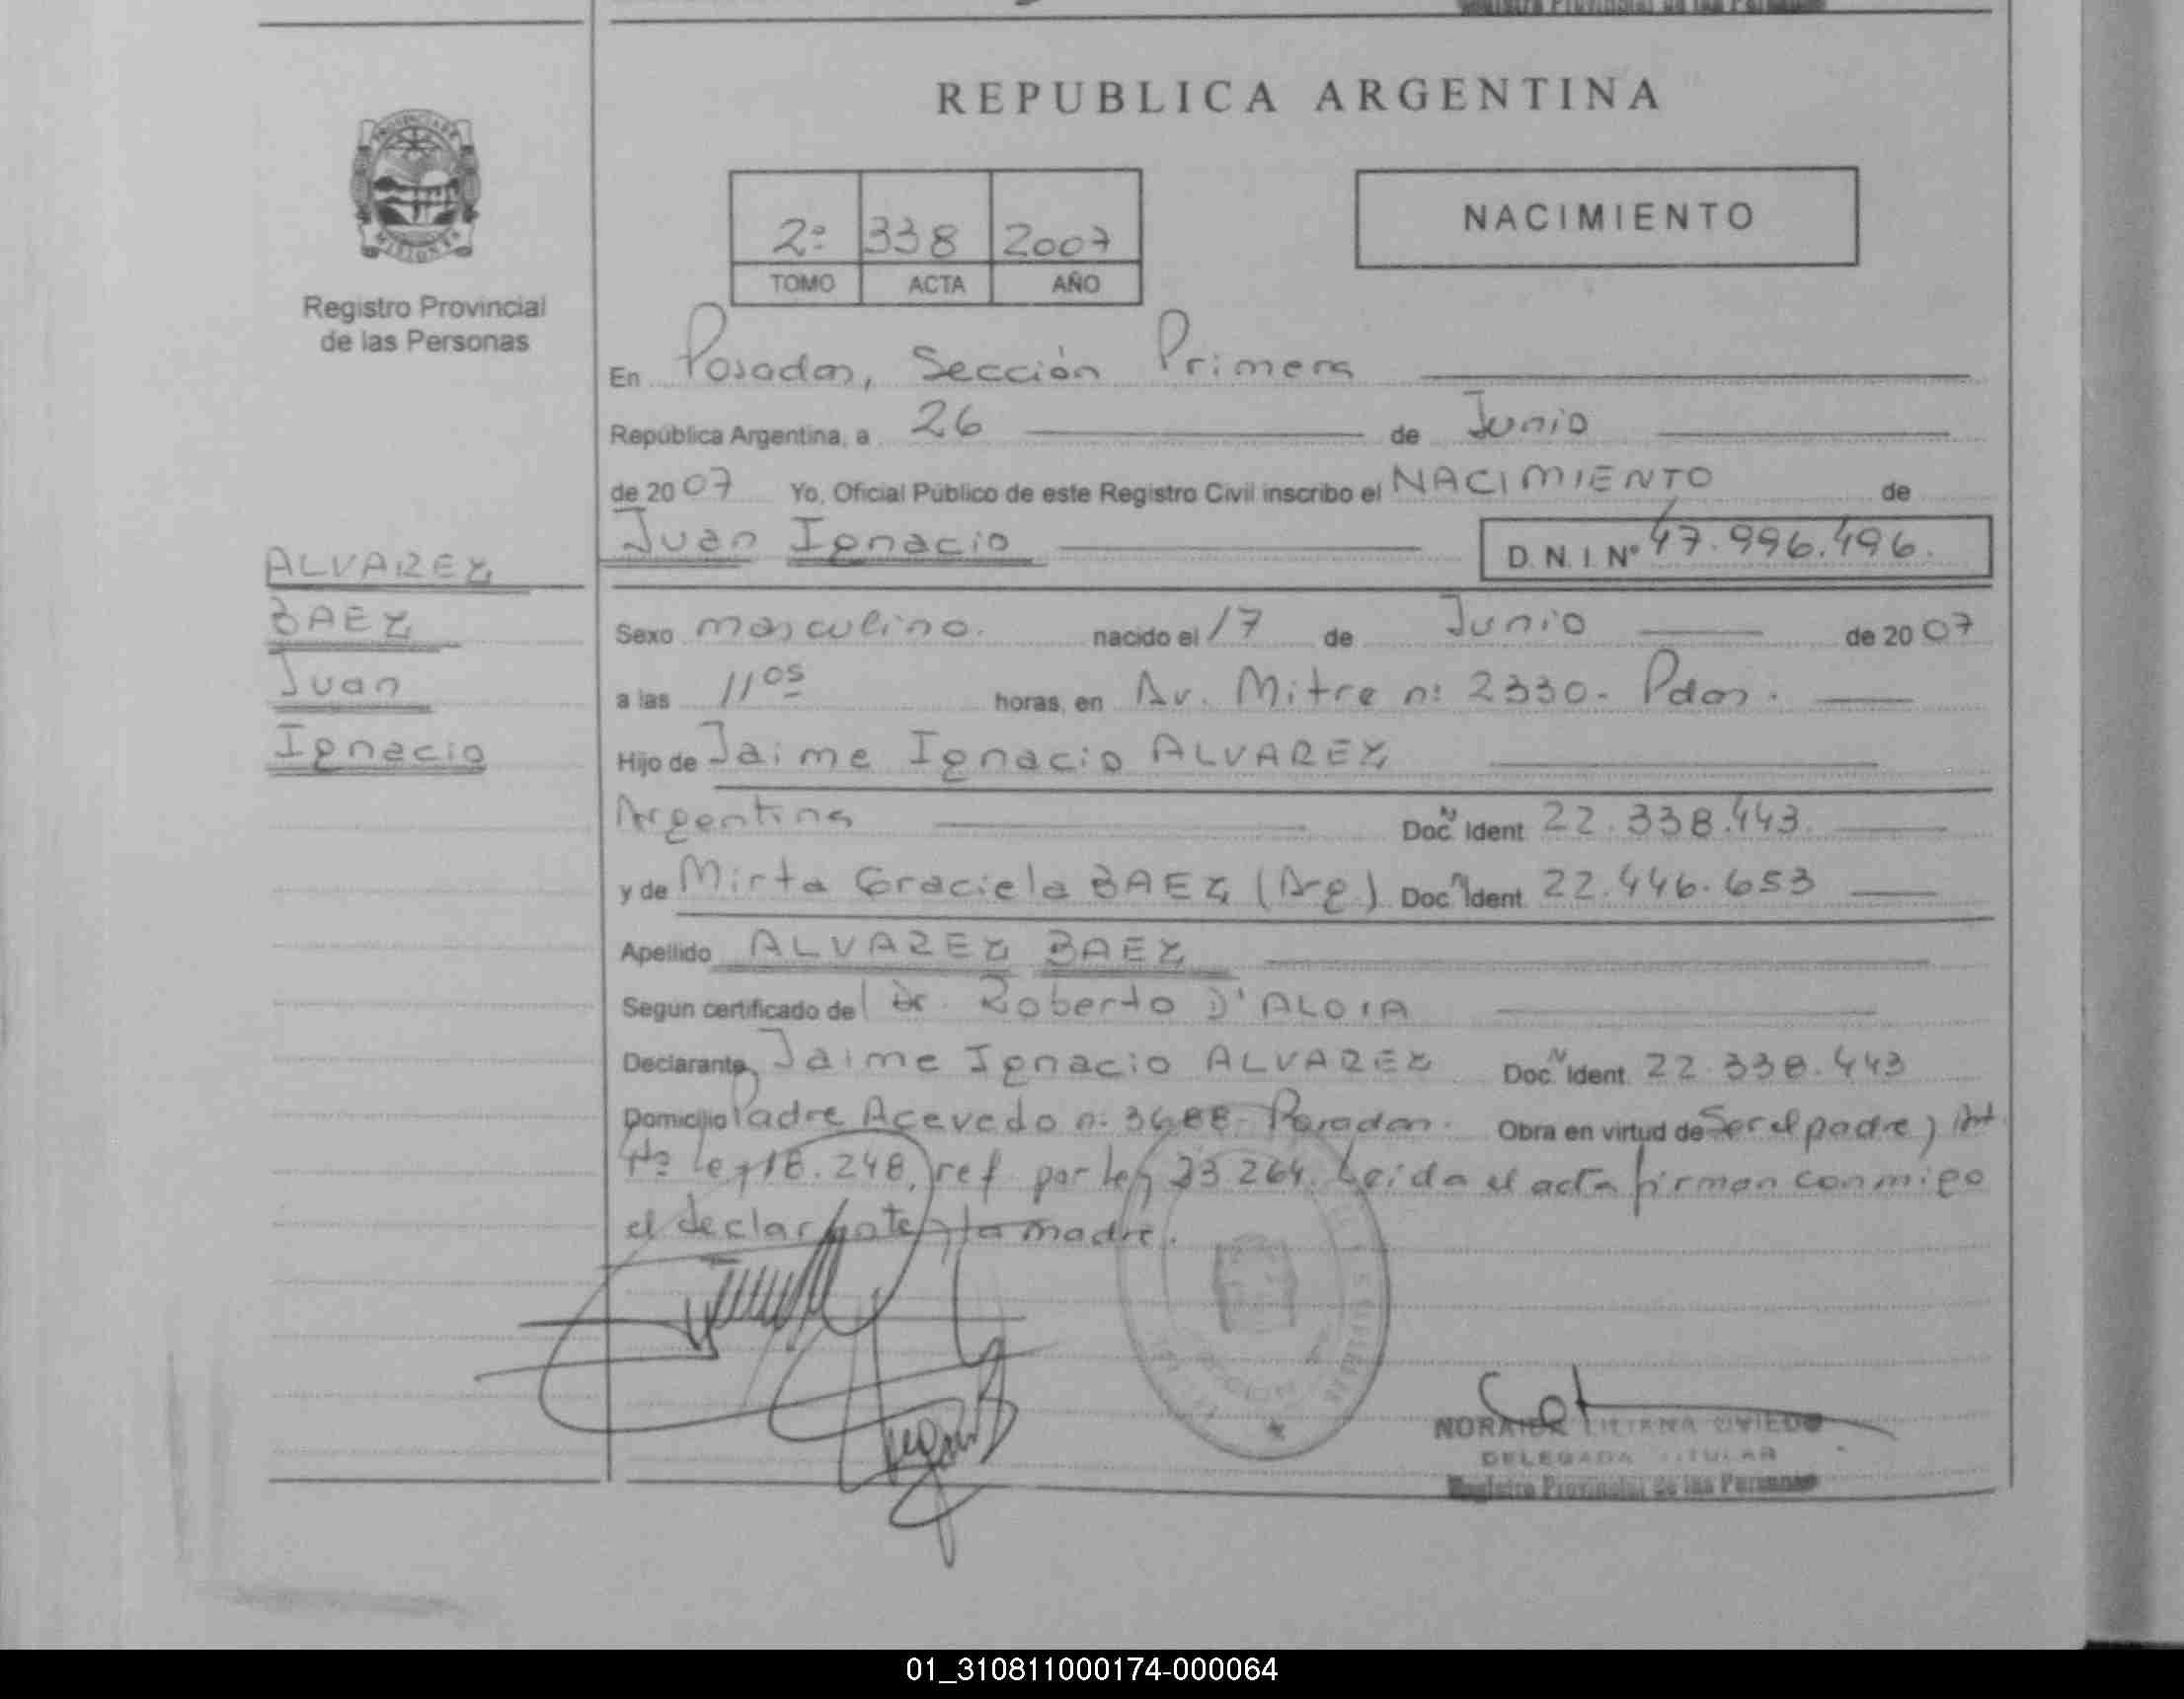 REPUBLICA ARGENTINA
PROVINCIA DE
MISIONES
Registro Provincial
de las Personas
2º 338 2007
TOMO ACTA AÑO
NACIMIENTO
En Posadas, Sección Primera
República Argentina, a 26 de Junio
de 2007 Yo, Oficial Público de este Registro Civil inscribo el NACIMIENTO de
Juan Ignacio D.N.I. Nº 47.996.496.
ALVAREZ
BAEZ
Juan
Ignacio
Sexo masculino. nacido el 17 de Junio de 2007
a las 11 05 horas, en Av. Mitre nº 2330- Pdas.
Hijo de Jaime Ignacio ALVAREZ
Argentina Doc. Ident. 22.338.443.
y de Mirta Graciela BAEZ (Arg) Doc. Ident. 22.446.653
Apellido ALVAREZ BAEZ
Segun certificado del Dr. Roberto D'ALOIA
Declarante Jaime Ignacio ALVAREZ Doc. Ident. 22.338.443
Domicilio Padre Acevedo nº 3688- Posadas. Obra en virtud de Ser el padre y Art
4º Ley 18.248, ref por ley 23264. Leída el acta firman conmigo
el declarante y la madre.
LILIANA OVIEDO
DELEGADA TITULAR
Registro Provincial de las Personas
01_310811000174-000064